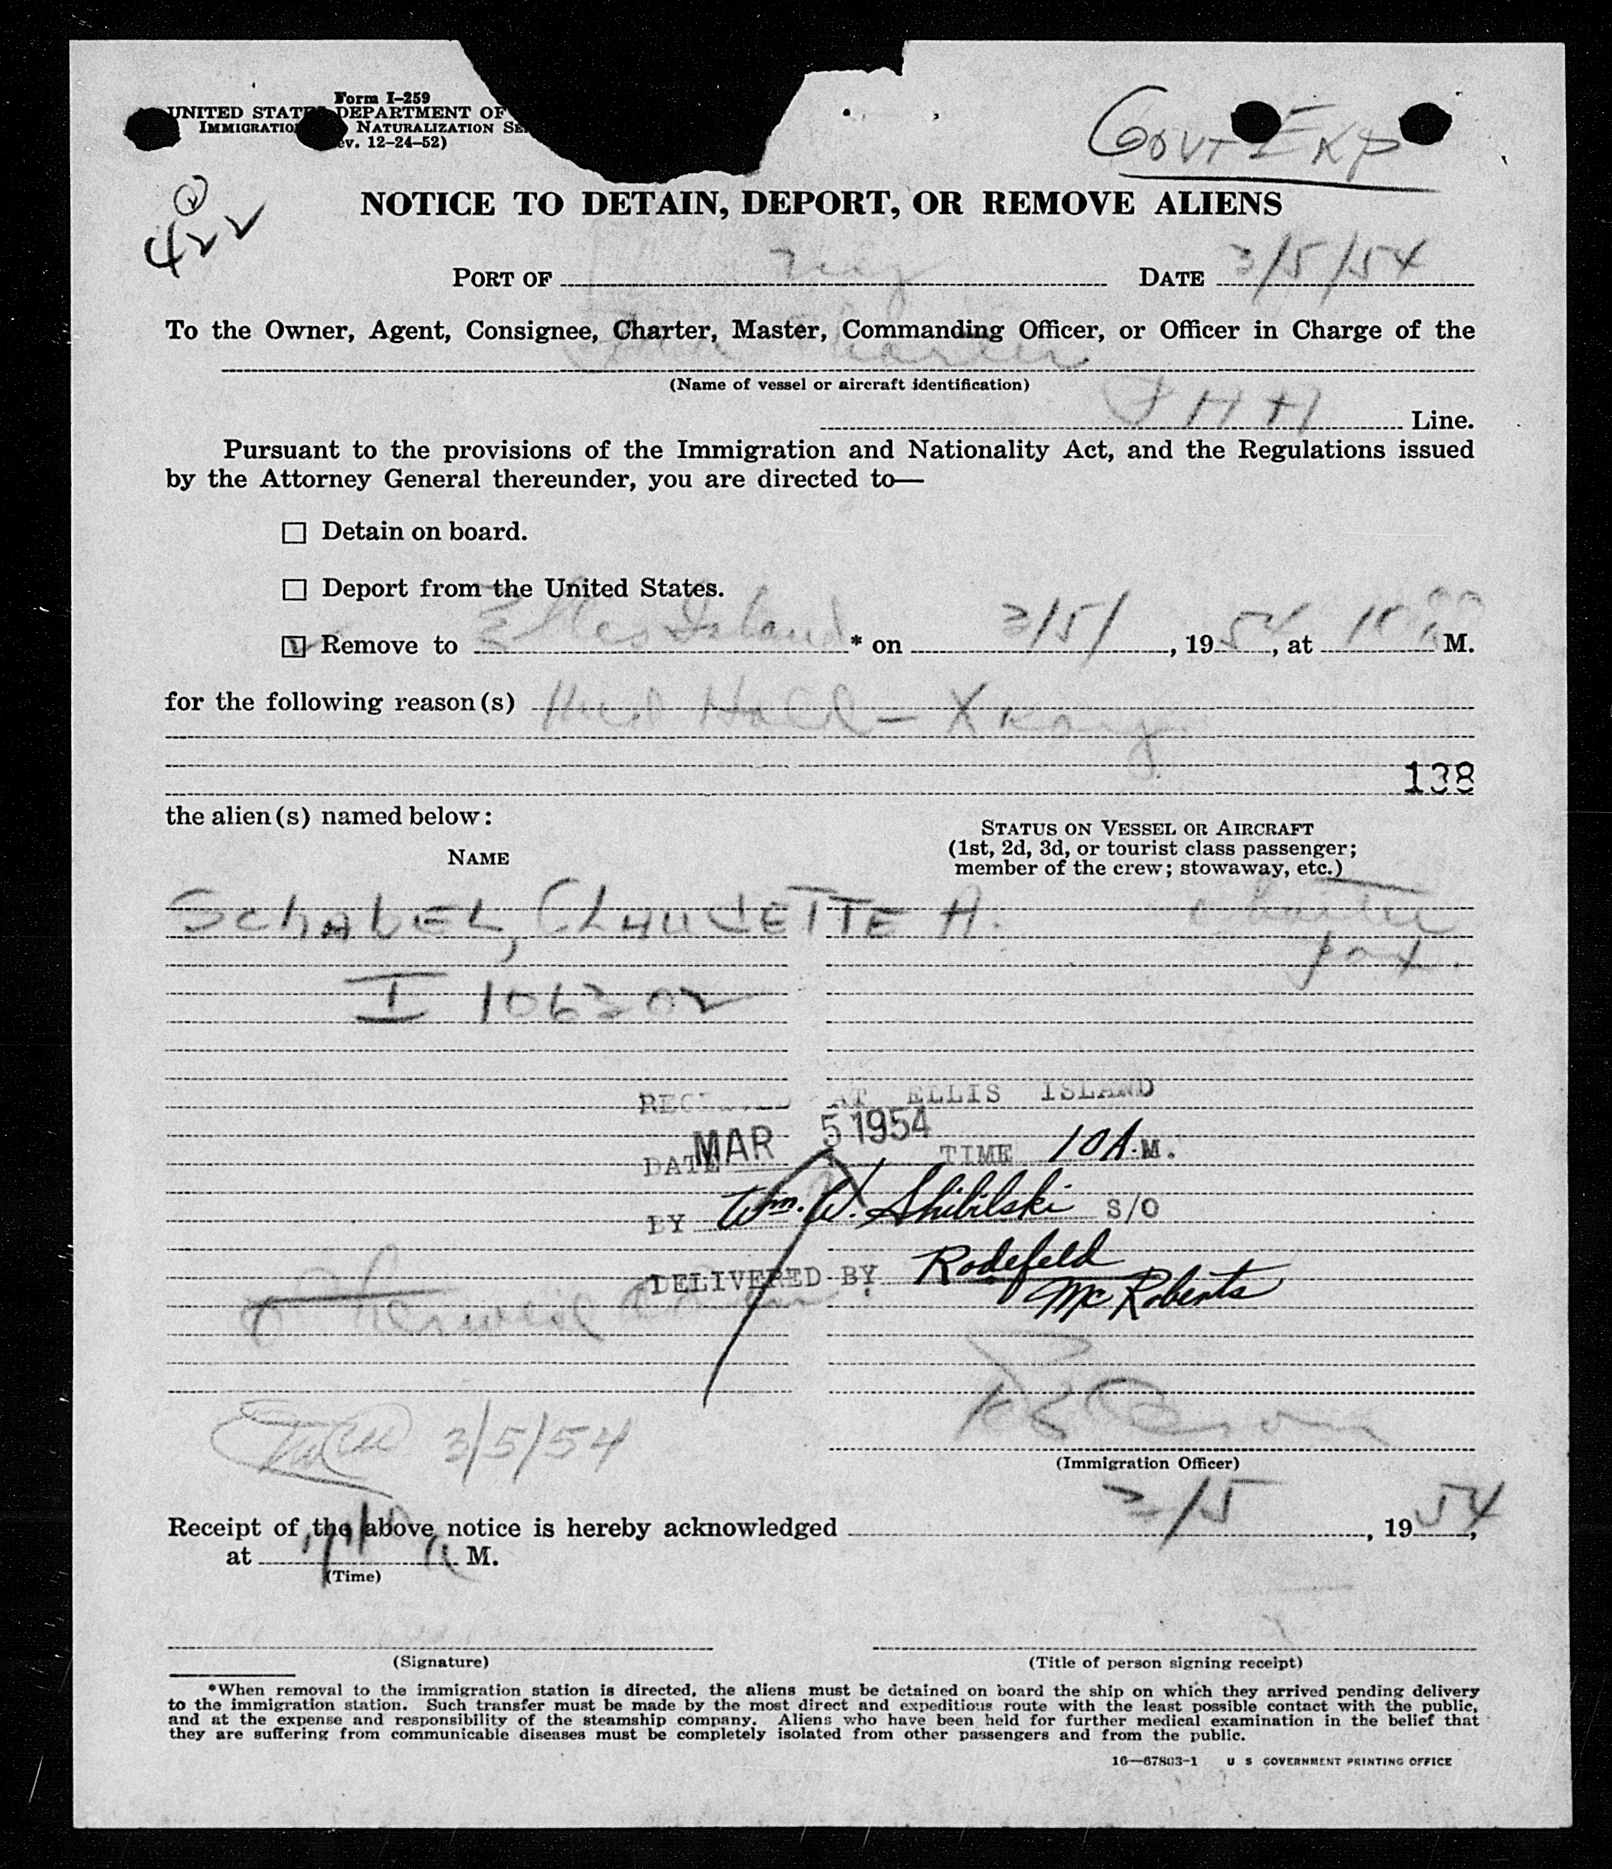 Form I-259
UNITED STATES DEPARTMENT OF
IMMIGRATION NATURALIZATION SE
ev. 12-24-52)
GOVT EXP
422
NOTICE TO DETAIN, DEPORT, OR REMOVE ALIENS
PORT OF NY DATE 3/5/54
To the Owner, Agent, Consignee, Charter, Master, Commanding Officer, or Officer in Charge of the
Charter
(Name of vessel or aircraft identification)
Line.
Pursuant to the provisions of the Immigration and Nationality Act, and the Regulations issued
by the Attorney General thereunder, you are directed to—
☐ Detain on board.
☐ Deport from the United States.
☑ Remove to Ellis Island * on 3/5/, 1954, at 10 M.
for the following reason(s) Med Hold - X Ray
138
the alien(s) named below:
NAME
STATUS ON VESSEL OR AIRCRAFT
(1st, 2d, 3d, or tourist class passenger;
member of the crew; stowaway, etc.)
SCHABEL, CLAUDETTE A. Charter
pax.
I 1063202
RECEIVED AT ELLIS ISLAND
DATE MAR 5 1954 TIME 10 A.M.
BY Wm. W. Shibilski S/O
DELIVERED BY Rodefeld
McRoberts
3/5/54
(Immigration Officer)
Receipt of the above notice is hereby acknowledged 3/5, 1954,
at M.
(Time)
(Signature)
(Title of person signing receipt)
*When removal to the immigration station is directed, the aliens must be detained on board the ship on which they arrived pending delivery
to the immigration station. Such transfer must be made by the most direct and expeditious route with the least possible contact with the public,
and at the expense and responsibility of the steamship company. Aliens who have been held for further medical examination in the belief that
they are suffering from communicable diseases must be completely isolated from other passengers and from the public.
16—67803-1 U S GOVERNMENT PRINTING OFFICE